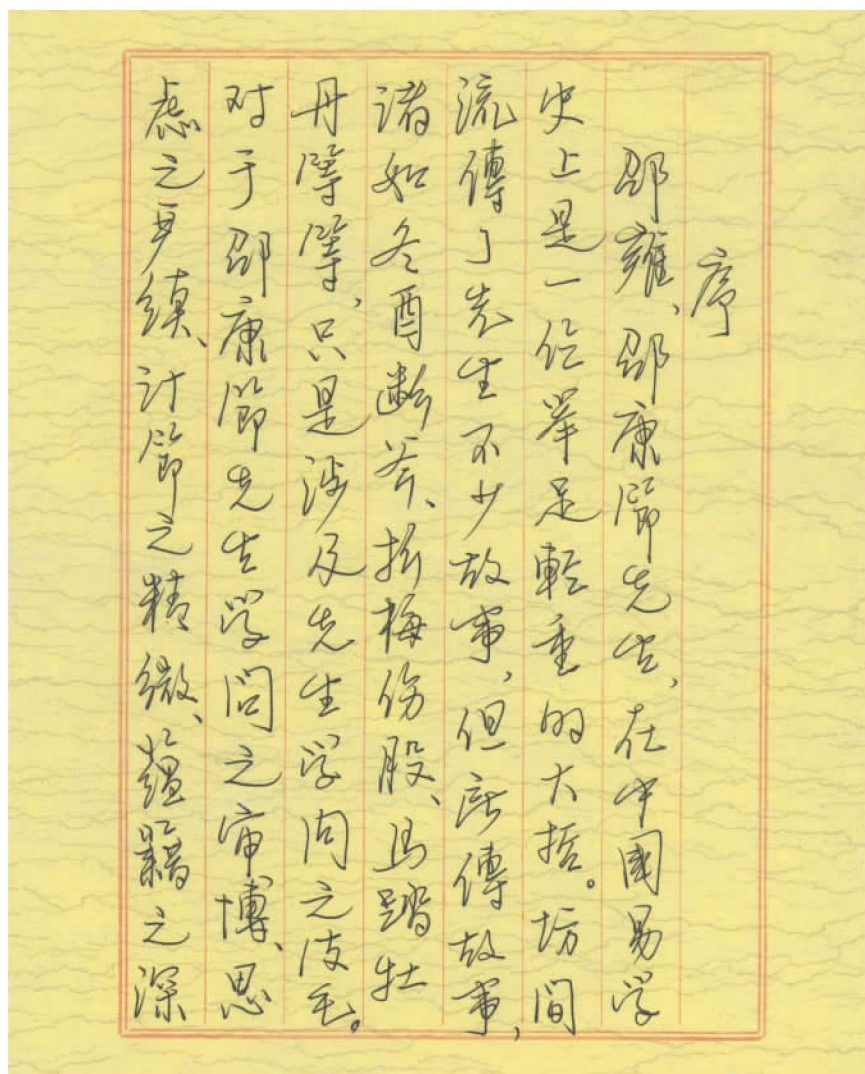 序
邵雍、邵康節先生,在中國易学
史上是一位举足輕重的大哲。坊間
流傳了先生不少故事,但所傳故事,
諸如冬酉斷斧、折梅伤股、馬踏牡
丹等等,只是涉及先生学问之皮毛。
对于邵康節先生学问之博、思
慮之縝、计節之精微、蕴籍之深